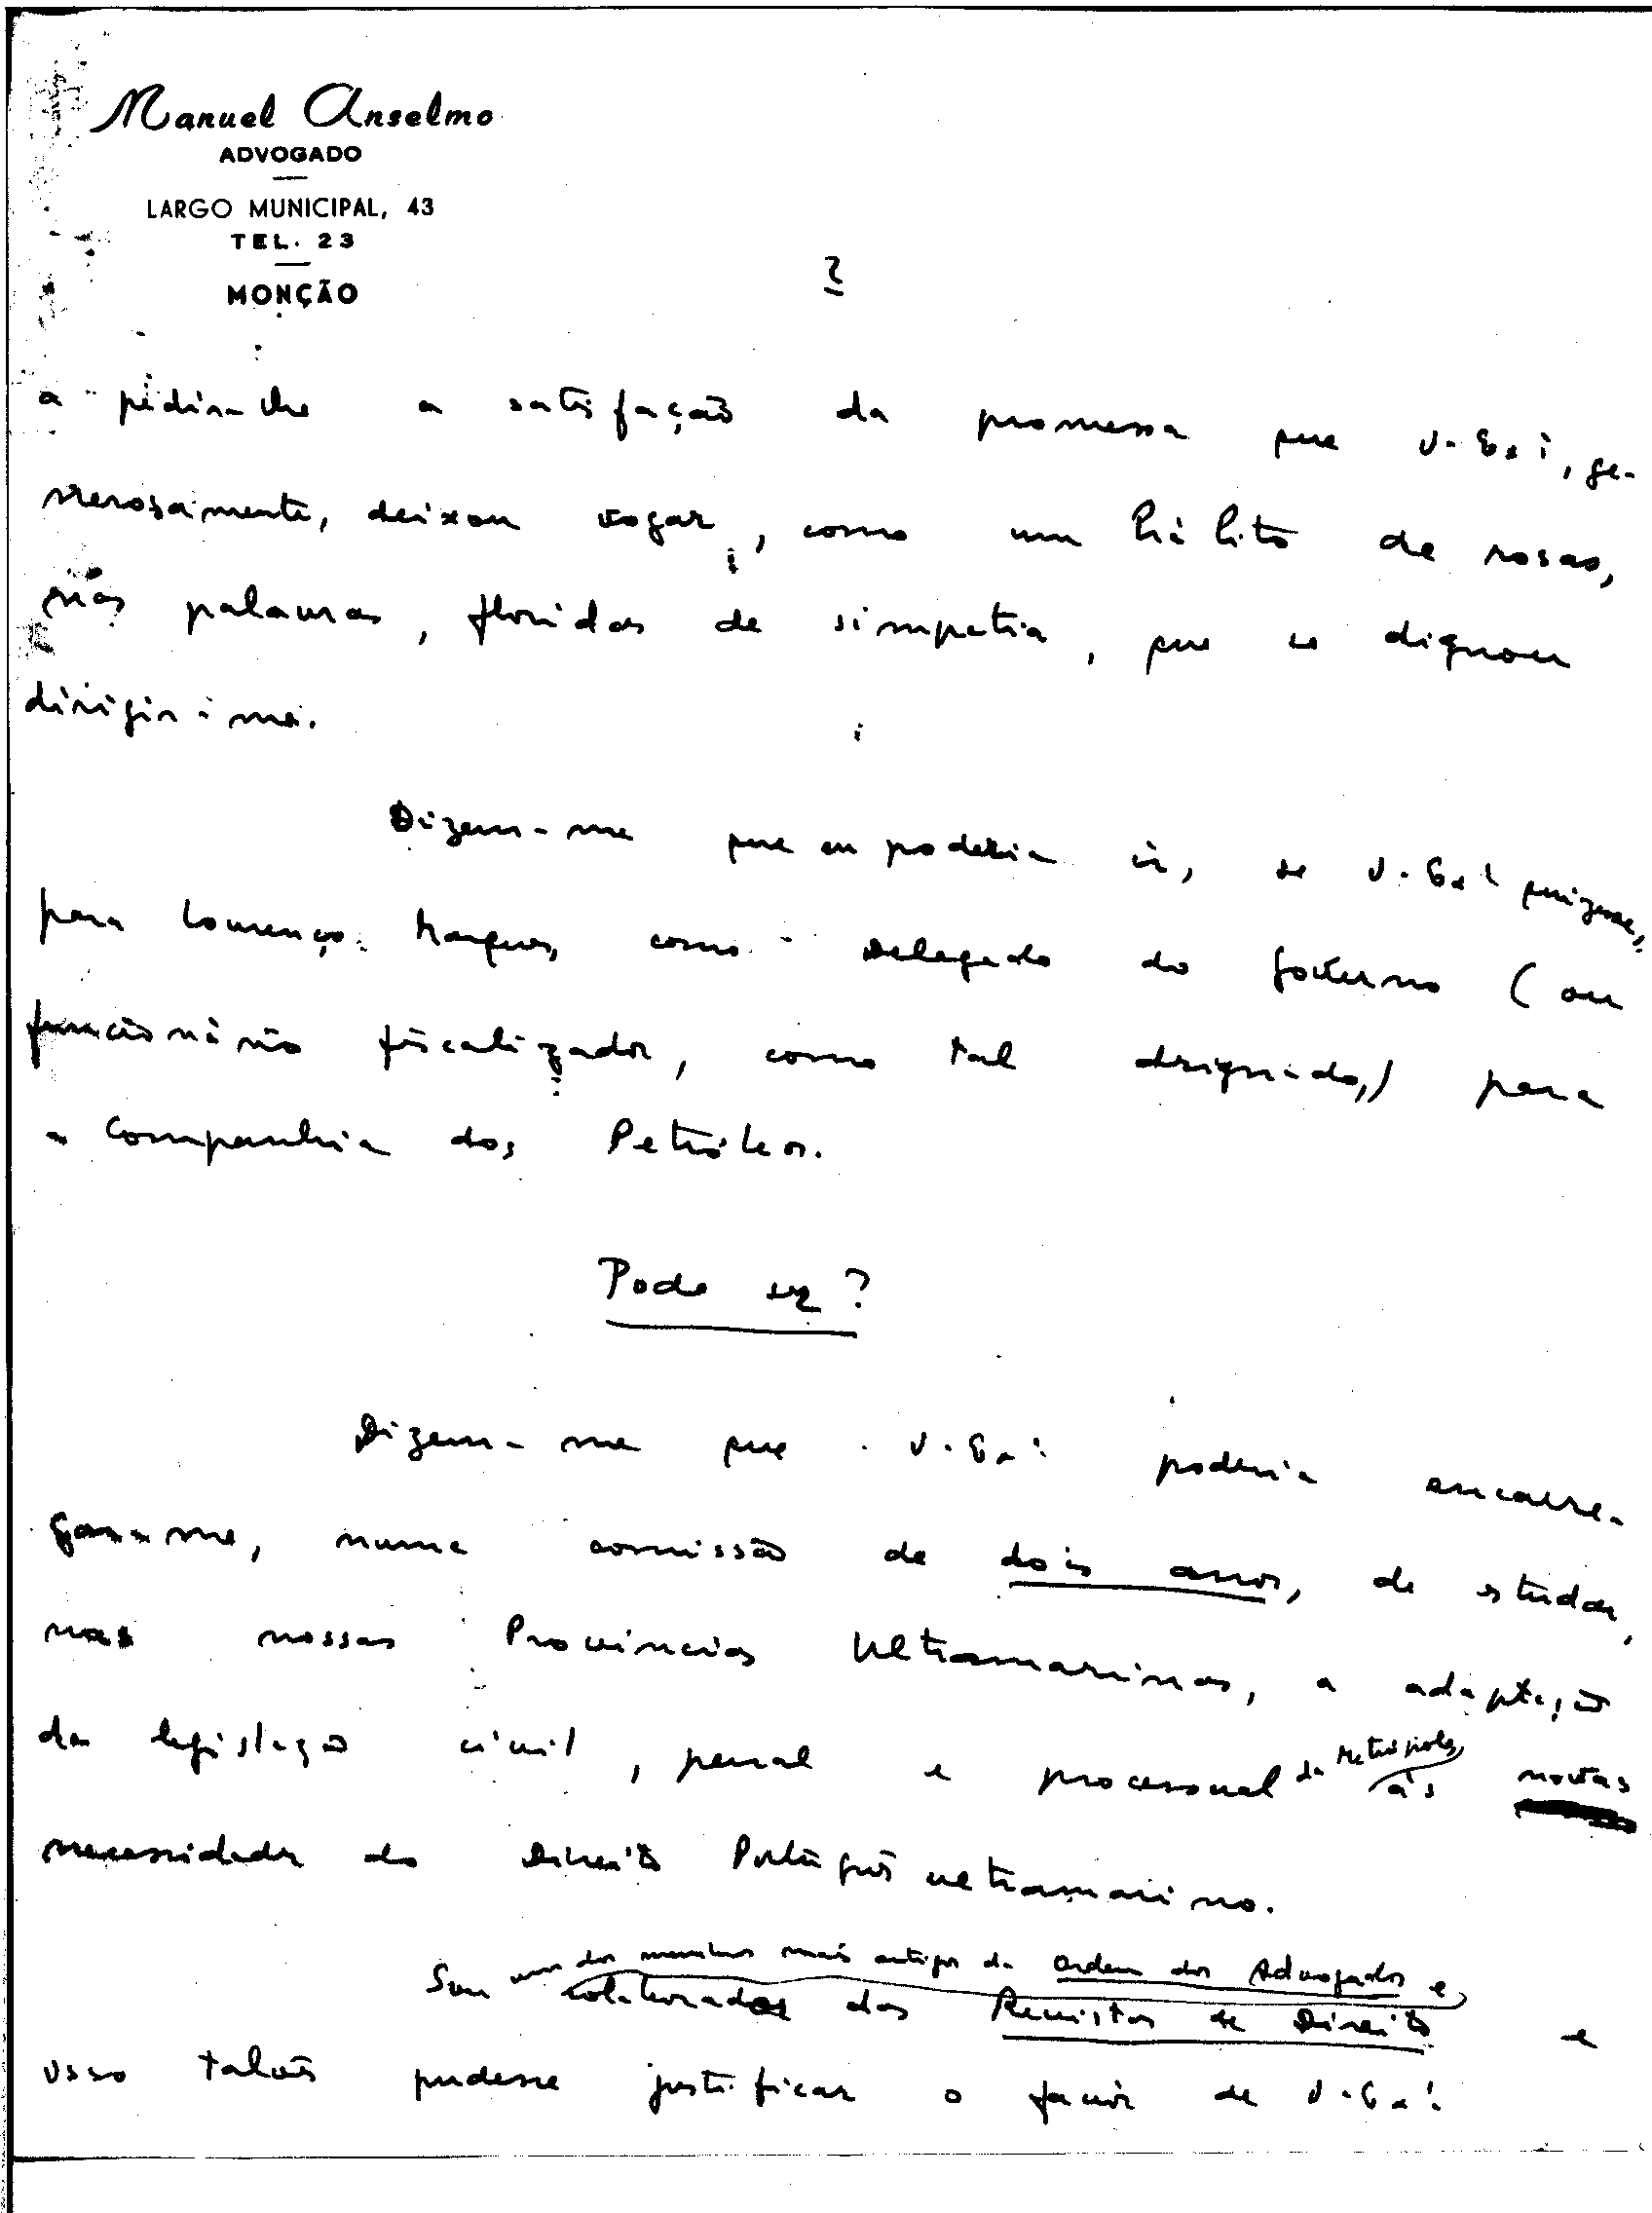 Manuel Anselmo
ADVOGADO
LARGO MUNICIPAL, 43
TEL. 23
MONÇÃO
2
a pedir-lhe a satisfação da promessa que V. Exª, ge-
nerosamente, deixou vogar, como um hálito de rosas,
nas palavras, floridas de simpatia, que se dignou
dirigir-me.
Dizem-me que eu poderia ir, se V. Exª quizesse,
para Lourenço Marques, como Delegado do Governo (ou
funcionário fiscalizador, como tal designado,) para
a Companhia dos Petróleos.
Pode ser?
Dizem-me que V. Exª poderia encarre-
gar-me, numa comissão de dois anos, de estudar,
nas nossas Províncias Ultramarinas, a adaptação
da legislação civil, penal e processual da Metrópole, às novas
necessidades do Direito Português ultramarino.
Sou um dos membros mais antigos da Ordem dos Advogados e
colaborador das Revistas de Direito e
isso talvês pudesse justificar o favôr de V. Exª